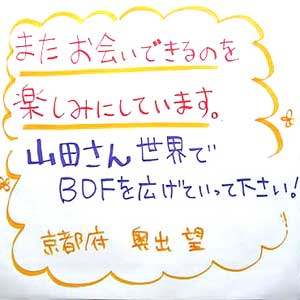 また お会いできるのを
楽しみにしています。
山田さん 世界で
BDFを広げていって下さい!
京都府 奥出 望